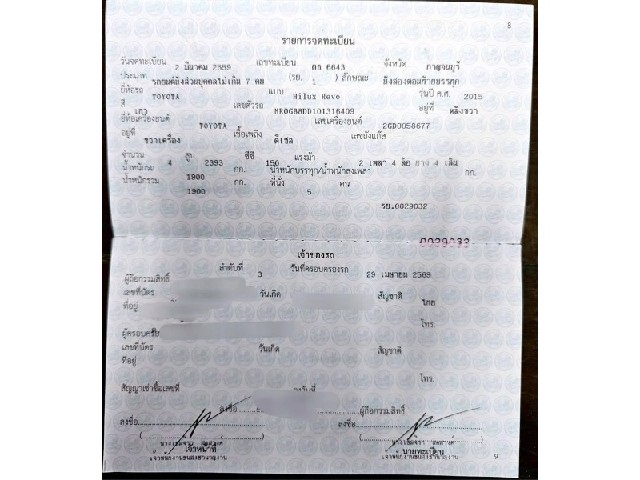 8
รายการจดทะเบียน
วันจดทะเบียน 2 มีนาคม 2559 เลขทะเบียน 6643 จังหวัด กาญจนบุรี
ประเภท รถยนต์นั่งส่วนบุคคลไม่เกิน 7 คน (รย. 1 ) ลักษณะ นั่งสองตอนท้ายบรรทุก
ยี่ห้อรถ TOYOTA แบบ Hilux Revo รุ่นปี ค.ศ. 2015
สี เทา เลขตัวรถ อยู่ที่ หลังขวา
ยี่ห้อเครื่องยนต์ TOYOTA เลขเครื่องยนต์ 2GD0058677
อยู่ที่ ขวาเครื่อง เชื้อเพลิง ดีเซล เลขถังแก๊ส
จำนวน 4 สูบ 2393 ซีซี 150 แรงม้า 2 เพลา 4 ล้อ ยาง 4 เส้น
น้ำหนักรถ 1900 กก. น้ำหนักบรรทุก/น้ำหนักลงเพลา กก.
น้ำหนักรวม 1900 กก. ที่นั่ง 5 คน
รย.0029032
เจ้าของรถ
ลำดับที่ 3 วันที่ครอบครองรถ 29 เมษายน 2569
ผู้ถือกรรมสิทธิ์
เลขที่บัตร วันเกิด สัญชาติ ไทย
ที่อยู่
โทร.
ผู้ครอบครอง
เลขที่บัตร วันเกิด สัญชาติ
ที่อยู่
โทร.
สัญญาเช่าซื้อเลขที่ ลงวันที่
ลงชื่อ ผู้ถือกรรมสิทธิ์
ลงชื่อ ลงชื่อ
เจ้าหน้าที่ นายทะเบียน
9